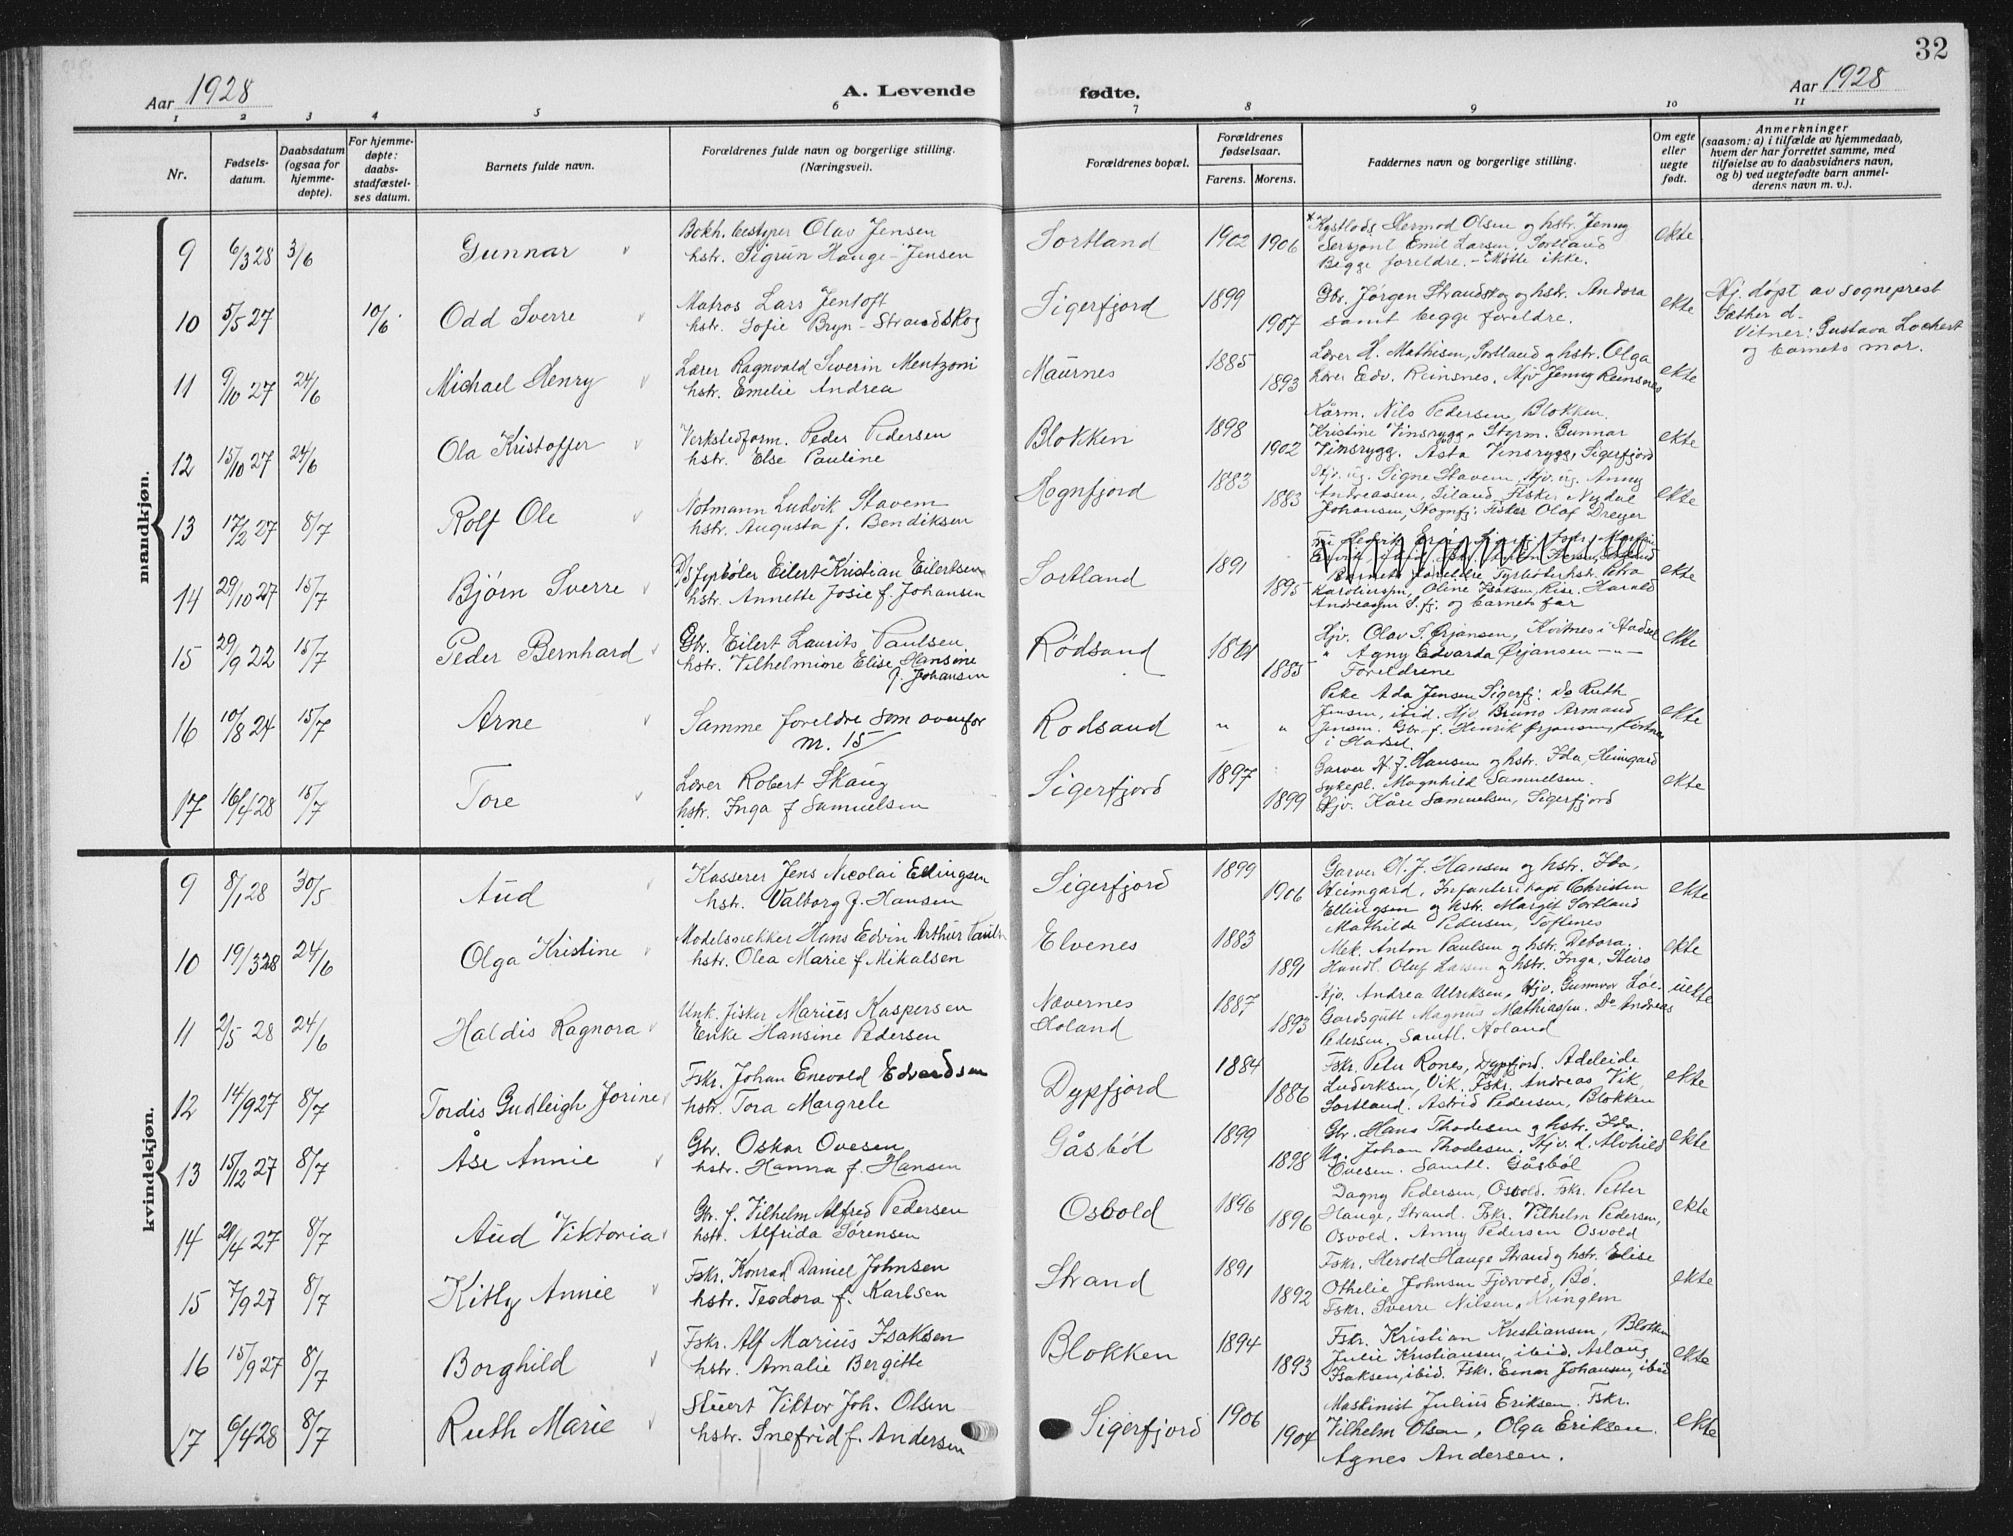 32
Aar 1928 A. Levende fødte. Aar 1928
1 2 3 4 5 6 7 8 9 10 11
Nr.
Fødsels-
datum.
Daabsdatum
(ogsaa for
hjemme-
døpte).
For hjemme-
døpte:
daabs-
stadfæstel-
ses datum.
Barnets fulde navn.
Forældrenes fulde navn og borgerlige stilling.
(Næringsvei).
Forældrenes bopæl.
Forældrenes
fødselsaar.
Farens. Morens.
Faddernes navn og borgerlige stilling.
Om egte
eller
uegte
født.
Anmerkninger
(saasom: a) i tilfælde av hjemmedaab,
hvem der har forrettet samme, med
tilføielse av to daabsvidners navn,
og b) ved uegtefødte barn anmel-
derens navn m. v.).
mandkjøn.
9 6/3 28 3/6 Gunnar
Bokh. bestyrer Olav Jensen
hstr. Sigrun Hauge-Jensen
Sortland 1902 1906
Hermod Olsen og hstr. Jenny
Sersjant Emil Larsen, Sortland
Begge foreldre. - Møtte ikke.
ekte
10 5/5 27 10/6 Odd Sverre
Matros Lars Jentoft
hstr. Sofie Bryn-Strandskog
Sigerfjord 1899 1907
Gbr. Jørgen Strandskog og hstr. Andora
samt begge foreldre.
ekte
Hj. døpt av sogneprest
Sæther d.
Vitner: Gustava Lochert
og barnets mor.
11 9/10 27 24/6 Michael Henry
Lærer Ragnvald Severin Mentzoni
hstr. Emelie Andrea
Maurnes 1885 1893
Lærer H. Mathisen, Sortland og hstr. Olga
Lærer Edv. Reinsnes, Hjv Jenny Reinsnes
ekte
12 15/10 27 24/6 Ola Kristoffer
Verkstedform. Peder Pedersen
hstr. Else Pauline
Blokken 1898 1902
Kårm. Nils Pedersen, Blokken.
Kristine Vinsrygg, Styrm. Gunnar
Vinsrygg. Asta Vinsrygg, Sigerfjord
ekte
13 17/2 27 8/7 Rolf Ole
Notmann Ludvik Stavem
hstr. Augusta f. Bendiksen
Hognfjord 1883 1883
Hjv. ug. Signe Stavem, Hjv. ug. Anny
Andreassen, Eiland, Fisker Nydal
Johansen, Hognfj. Fisker Olaf Dreyer
ekte
14 29/10 27 15/7 Bjørn Sverre
D/S fyrbøter Eilert Kristian Eilertsen
hstr. Annette Josie f. Johansen
Sortland 1891 1895
Barnets foreldre Fyrbøter hstr. Petra
Karoliussen, Oline Isaksen, Rise. Harald
Andreassen S.fj. og barnets far
ekte
15 29/9 22 15/7 Peder Bernhard
Gbr. Eilert Laurits Paulsen
hstr. Vilhelmine Elise Hansine
f. Johansen
Rødsand 1885
Hjv. Olav S. Ørjansen, Kvitnes i Hadsel
" Agny Edvarda Ørjansen -"-
Foreldrene
ekte
16 10/8 24 15/7 Arne
Samme foreldre som ovenfor
nr. 15
Rødsand " "
Pike Ada Jensen Sigerfj: Do Ruth
Jensen, ibid. Hjv Bruno Armand
Jensen. Gbr. f. Henrik Ørjansen, Kvitnes
i Hadsel.
ekte
17 16/4 28 15/7 Tore
Lærer Robert Skaug
hstr. Inga f Samuelsen
Sigerfjord 1897 1899
Garver H. J. Hansen og hstr. Ida, Heimgard
Sykepl. Magnhild Samuelsen.
Hjv. Kåre Samuelsen, Sigerfjord
ekte
kvindekjøn.
9 8/1 28 30/5 Aud
Kasserer Jens Nicolai Ellingsen
hstr. Valborg f. Hansen
Sigerfjord 1899 1906
Garver H. J. Hansen og hstr. Ida,
Heimgard, Infanterikapt Christen
Ellingsen og hstr. Margit Sortland
ekte
10 19/3 28 24/6 Olga Kristine
Modelsnekker Hans Edvin Arthur Pauls
hstr. Olea Marie f. Mikalsen
Elvenes 1883 1891
Mathilde Pedersen, Toflenes
Mek. Anton Paulsen og hstr. Debora,
Handl. Oluf Larsen og hstr. Inga, Steiro
ekte
11 2/5 28 24/6 Haldis Ragnora
Unk. fisker Marius Kaspersen
Enke Hansine Pedersen
Nævernes
Holand
1887 1893
Hjv. Andrea Ulriksen, Hjv. Gunnvor
Gardsgutt Magnus Mathiassen. Do Andreas
Pedersen. Samtl. Holand
uekte
12 14/9 27 8/7 Tordis Gudleigh Jorine
Fskr. Johan Enevold Edvardsen
hstr. Tora Margrete
Dypfjord 1884 1886
Fskr. Peter Rones, Dypfjord. Adeleide
Luderksen, Vik. Fskr. Andreas Vik,
Sortland. Astrid Pedersen, Blokken
ekte
13 15/12 27 8/7 Åse Annie
Gbr. Oskar Ovesen
hstr. Hanna f. Hansen
Gåsbøl 1899 1898
Gbr. Hans Thodesen og hstr. Ida.
Ug. Johan Thodesen. Hjv. d. Alvhild
Ovesen. Samtl. Gåsbøl
ekte
14 29/4 27 8/7 Aud Viktoria
Gbr. f. Vilhelm Alfred Pedersen
hstr. Alfrida Sørensen
Osvold 1896 1896
Dagny Pedersen, Osvold. Fskr. Petter
Hauge, Strand. Fskr. Vilhelm Pedersen,
Osvold. Anny Pedersen Osvold
ekte
15 7/9 27 8/7 Kitty Annie
Fskr. Konrad Daniel Johnsen
hstr. Teodora f. Karlsen
Strand 1891 1892
Fskr. Herold Hauge Strand og hstr. Elise
Othelie Johnsen Fjærvold, Bø.
Fskr. Sverre Nilsen, Kringlen
ekte
16 15/9 27 8/7 Borghild
Fskr. Alf Marius Isaksen
hstr. Amalie Bergitte
Blokken 1894 1893
Fskr. Kristian Kristiansen, Blokken
Julie Kristiansen, ibid. Aslaug
Isaksen, ibid. Fskr. Einar Johansen, ibid
ekte
17 6/4 28 8/7 Ruth Marie
Stuert Viktor Joh. Olsen
hstr. Snefrid f. Andersen
Sigerfjord 1906 1904
Maskinist Julius Eriksen. Fskr.
Vilhelm Olsen, Olga Eriksen.
Agnes Andersen.
ekte